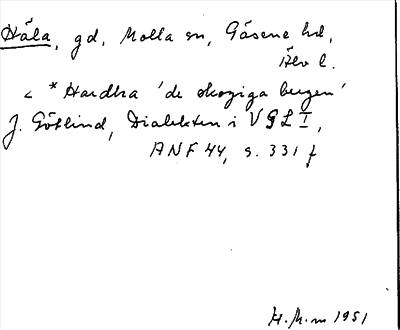 Håla, gd, Molla sn, Gäsene hd,
Älvsb l.
< *Hardha 'de skogiga bergen'
J. Götlind, Dialekten i VGL I,
ANF 44, s. 331 f
H. M-m 1951